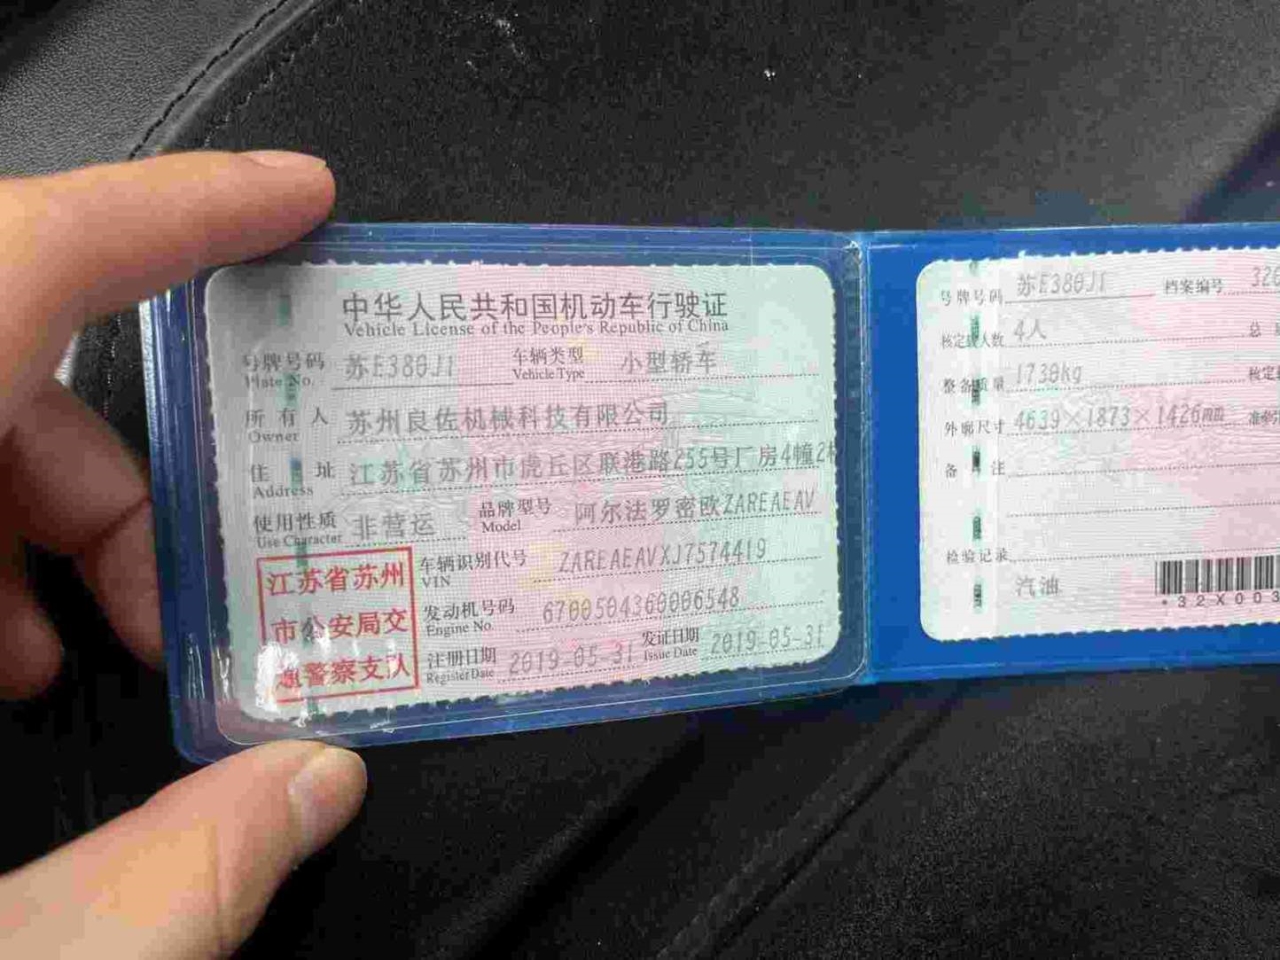 中华人民共和国机动车行驶证
Vehicle License of the People's Republic of China
号牌号码 苏E380J1 车辆类型 小型轿车
Plate No. Vehicle Type
所有人 苏州良佐机械科技有限公司
Owner
住址 江苏省苏州市虎丘区联港路255号厂房4幢2
Address
使用性质 非营运 品牌型号 阿尔法罗密欧ZAREAEAV
Use Character Model
车辆识别代号 ZAREAEAVXJ7574419
VIN
发动机号码 6700504360006548
Engine No.
注册日期 2019-05-31 发证日期 2019-05-31
Register Date Issue Date
江苏省苏州
市公安局交
通警察支队
号牌号码 苏E380J1 档案编号 320
核定载人数 4人 总
整备质量 1730kg 核定
外廓尺寸 4639×1873×1426mm 准牵
备注
检验记录
汽油
*32X003